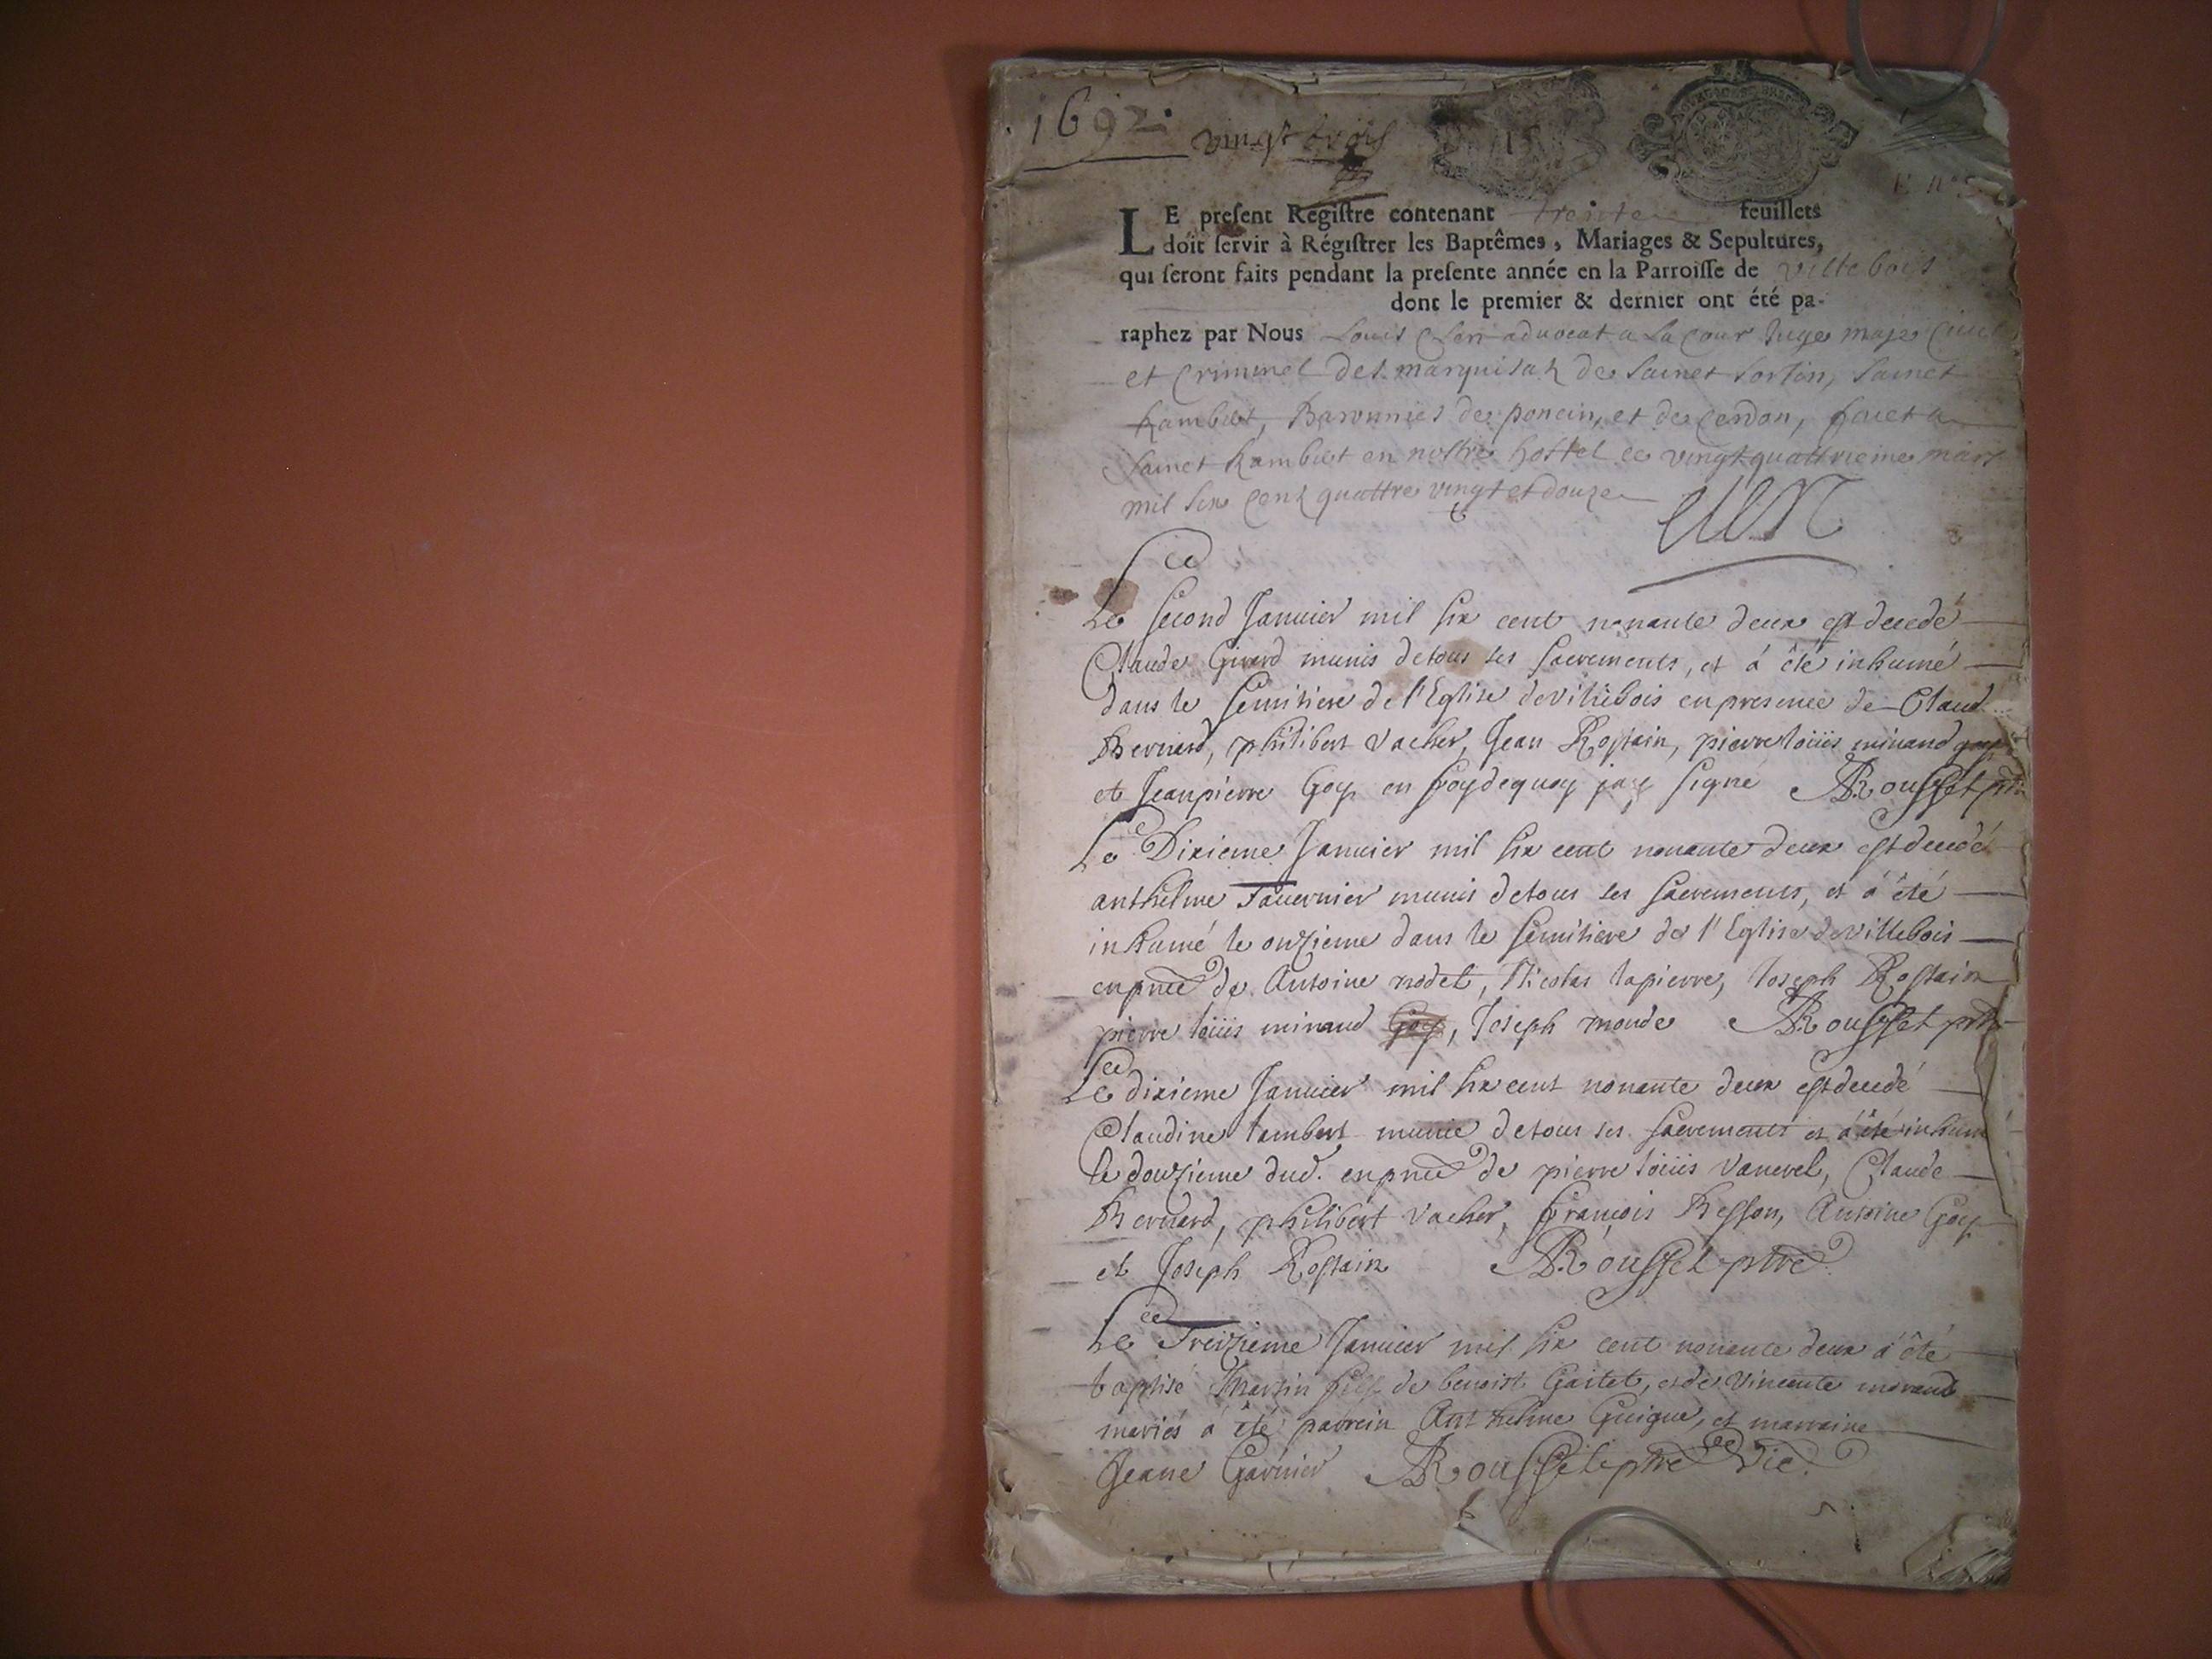 1692.
vingt trois
LE present Registre contenant trente feuillets
doit servir à Régistrer les Baptêmes, Mariages & Sepultures,
qui seront faits pendant la presente année en la Parroisse de villebois
dont le premier & dernier ont été pa-
raphez par Nous Louis Clerc advocat a La Cour Juge maje Civil
et Criminel des marquisatz de Sainct Sorlin, Sainct
Rambert, Baronnies de poncin, et de Cerdon, faict a
Sainct Rambert en nostre hostel ce vingt quattrieme mars
mil six Centz quattre vingt et douze
Le second Januier mil six cent nonante deux est decedé
Claude Girard munis de tous ses sacrements, et á été inhumé
dans le semitiere de l'Eglise de villebois en presence de Claud
Bernard, philibert vacher, Jean Rostain, pierre loüis minand
et Jean pierre Goy en foy de quoy jay signé ARousset ptre
Le Dixieme Januier mil six cent nonante deux est decedé
anthelme Tauernier munis de tous ses sacrements, et á été
inhumé le onzieme dans le semitiere de l'Eglise de villebois
en pnce de Antoine nodet, Nicolas lapierre, Joseph Rostain
pierre loüis minand Goy, Joseph monde ARousset ptre
Le dixieme Januier mil six cent nonante deux est decedé
Claudine lambert munie de tous ses sacrements et á été inhum
le douzieme dud. en pnce de pierre loüis vanerel, Claude
Bernard, philibert vacher, François Besson, Antoine Goy
et Joseph Rostain ARousset ptre
Le Treizieme Januier mil six cent nonante deux á été
baptisé Martin fils de benoist Gaitet, et de vincente morand
mariés á été parrein Anthelme Guigue, et marraine
Jeane Garnier ARousset ptre Vic.